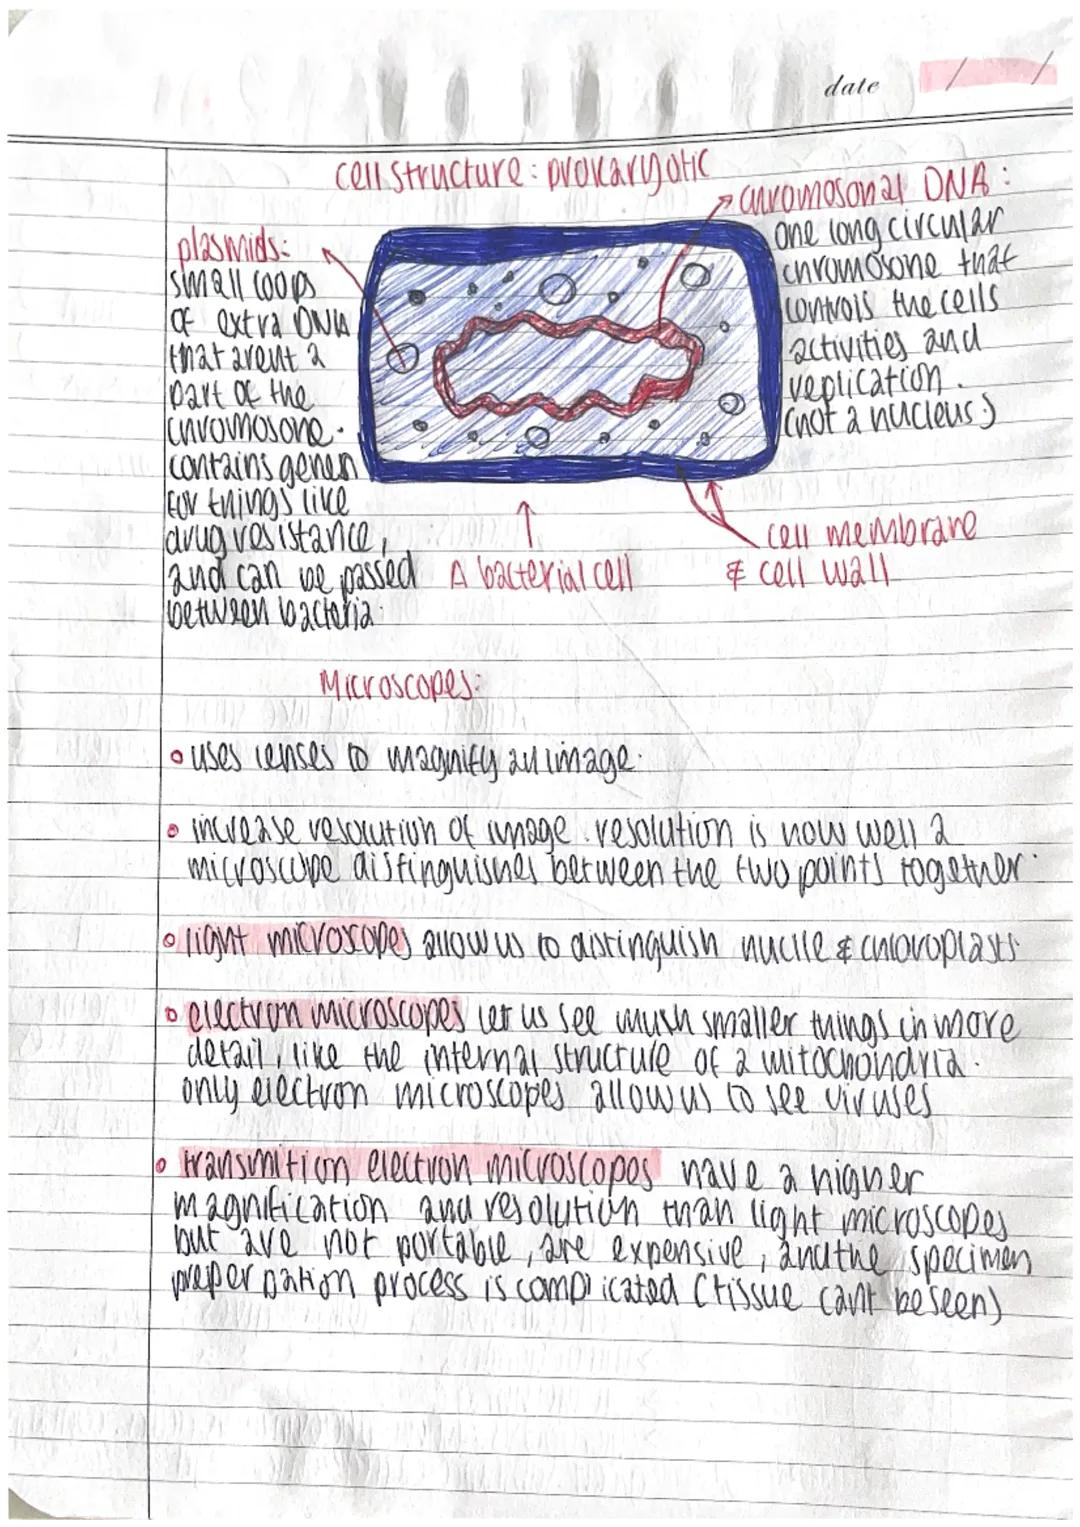 date
cell structure : prokaryotic
plasmids:
small loops
of extra DNA
that arent a
part of the
chromosone.
contains genen
for things like
drug resistance,
and can be passed
between bacteria.
chromosonal DNA :
one long circular
chromosone that
controls the cells
activities and
replication.
(not a nucleus:)
cell membrane
& cell wall
A bacterial cell
Microscopes:
uses lenses to magnify an image.
increase resolution of image. resolution is how well a
microscope distinguishes between the two points together.
light microscopes allow us to distinguish nuclie & chloroplasts
electron microscopes let us see mush smaller things in more
detail, like the internal structure of a mitochondria.
only electron microscopes allow us to see viruses
transmition electron microscopes have a higher
magnification and resolution than light microscopes
but are not portable, are expensive, and the specimen
preperpation process is complicated (tissue cant be seen)